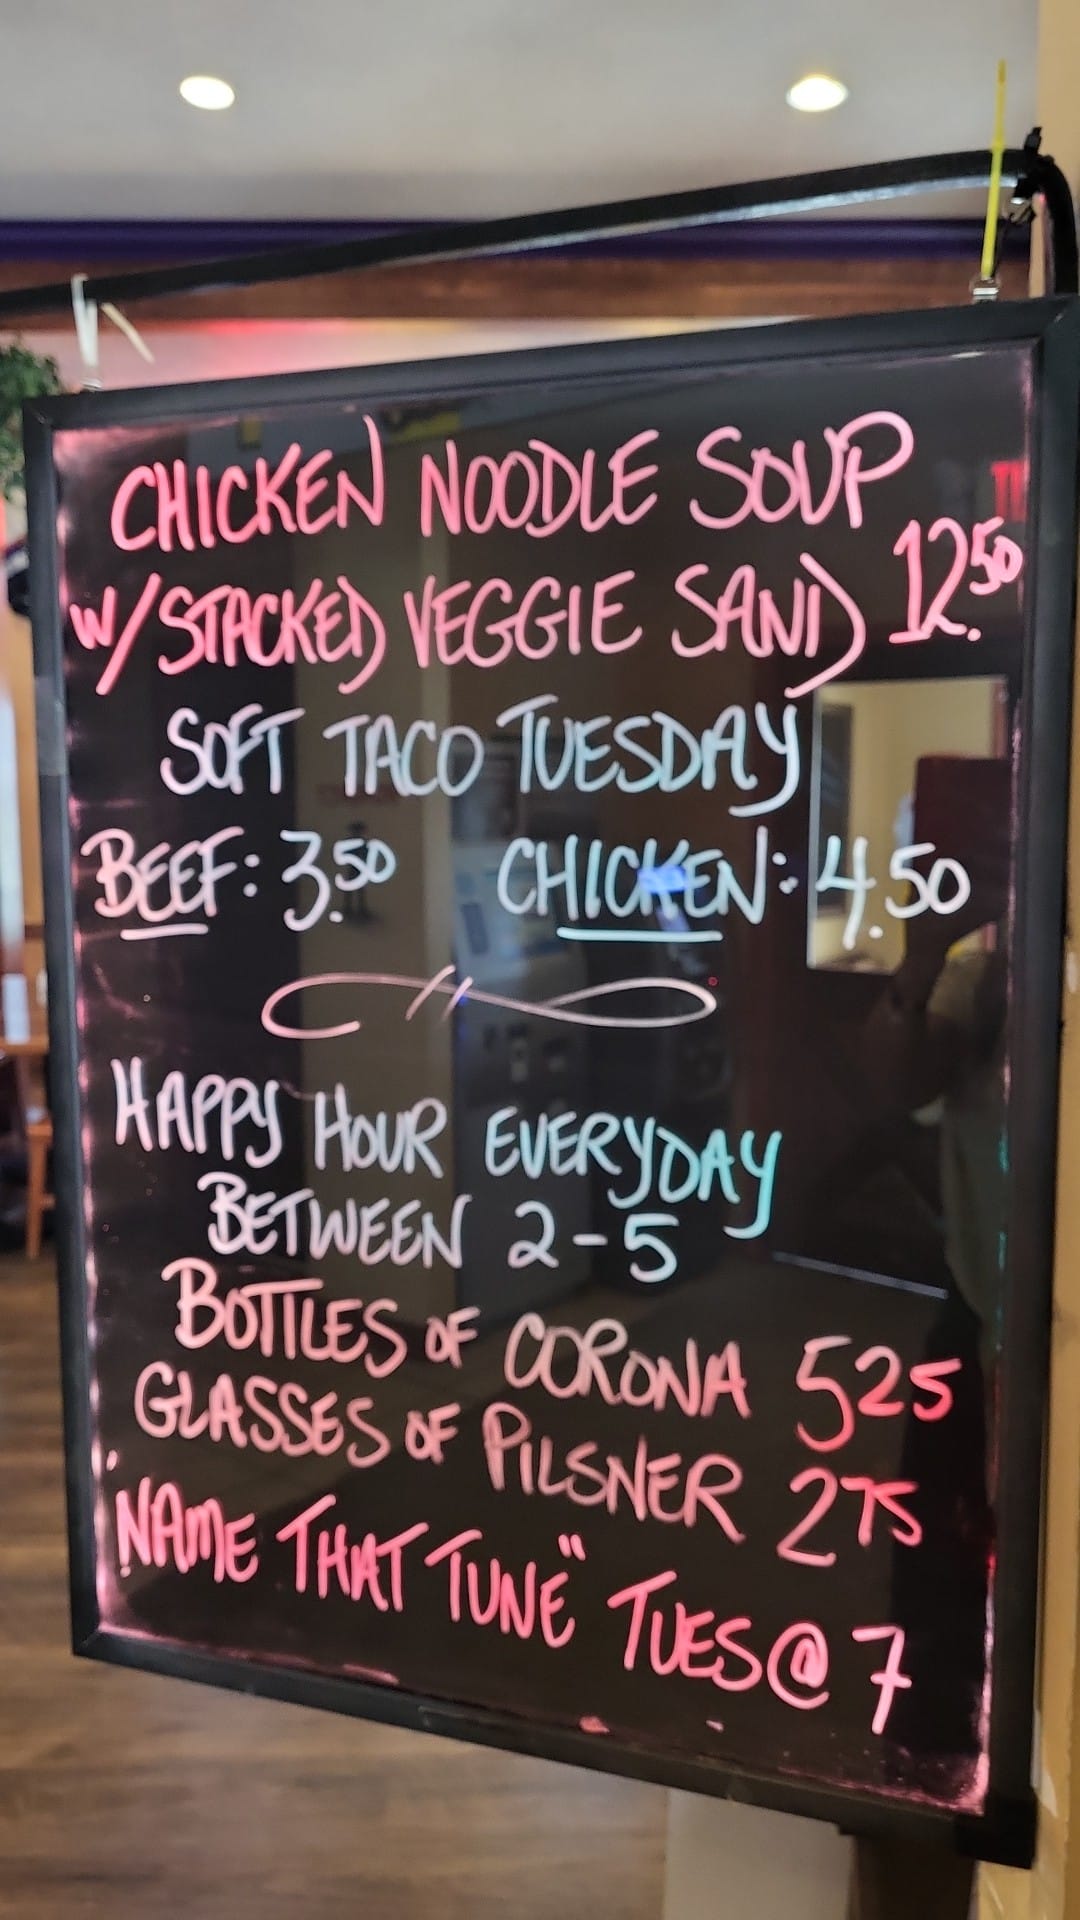 CHICKEN NOODLE SOUP
W/STACKED VEGGIE SAND 12.50
SOFT TACO TUESDAY
BEEF: 3.50 CHICKEN: 4.50
HAPPY HOUR EVERYDAY
BETWEEN 2-5
BOTTLES OF CORONA 525
GLASSES OF PILSNER 275
"NAME THAT TUNE" TUES@7